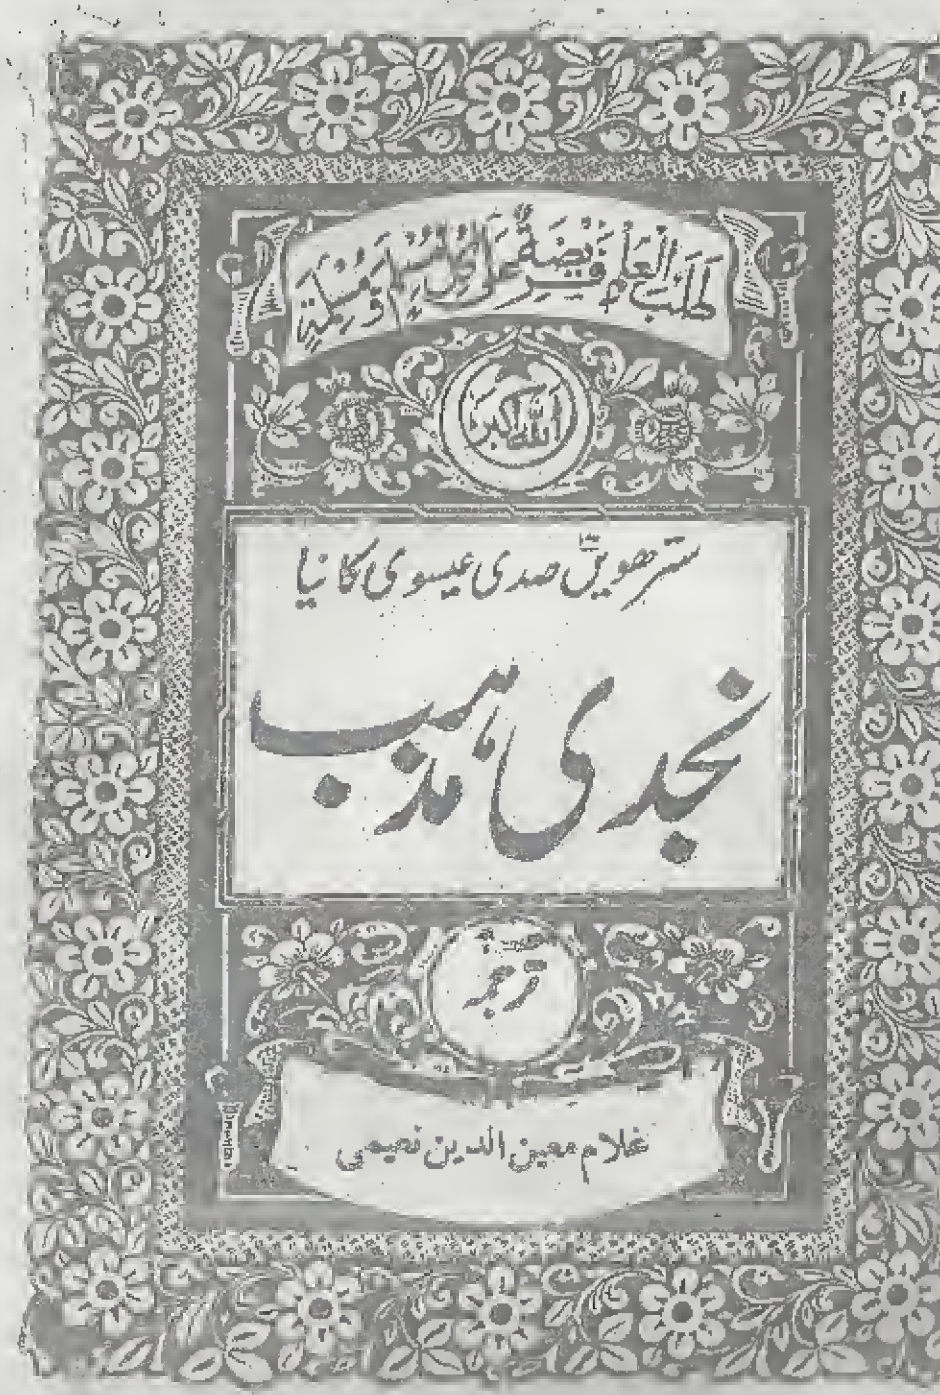 طَلَبُ الْعِلْمِ فَرِيضَةٌ عَلٰى كُلِّ مُسْلِمٍ وَّمُسْلِمَةٍ
اللہ اکبر
سترھویںؔ صدی عیسوی کا نیا
نجدی مذہب
ترجمہ
غلام معین الدین نعیمی